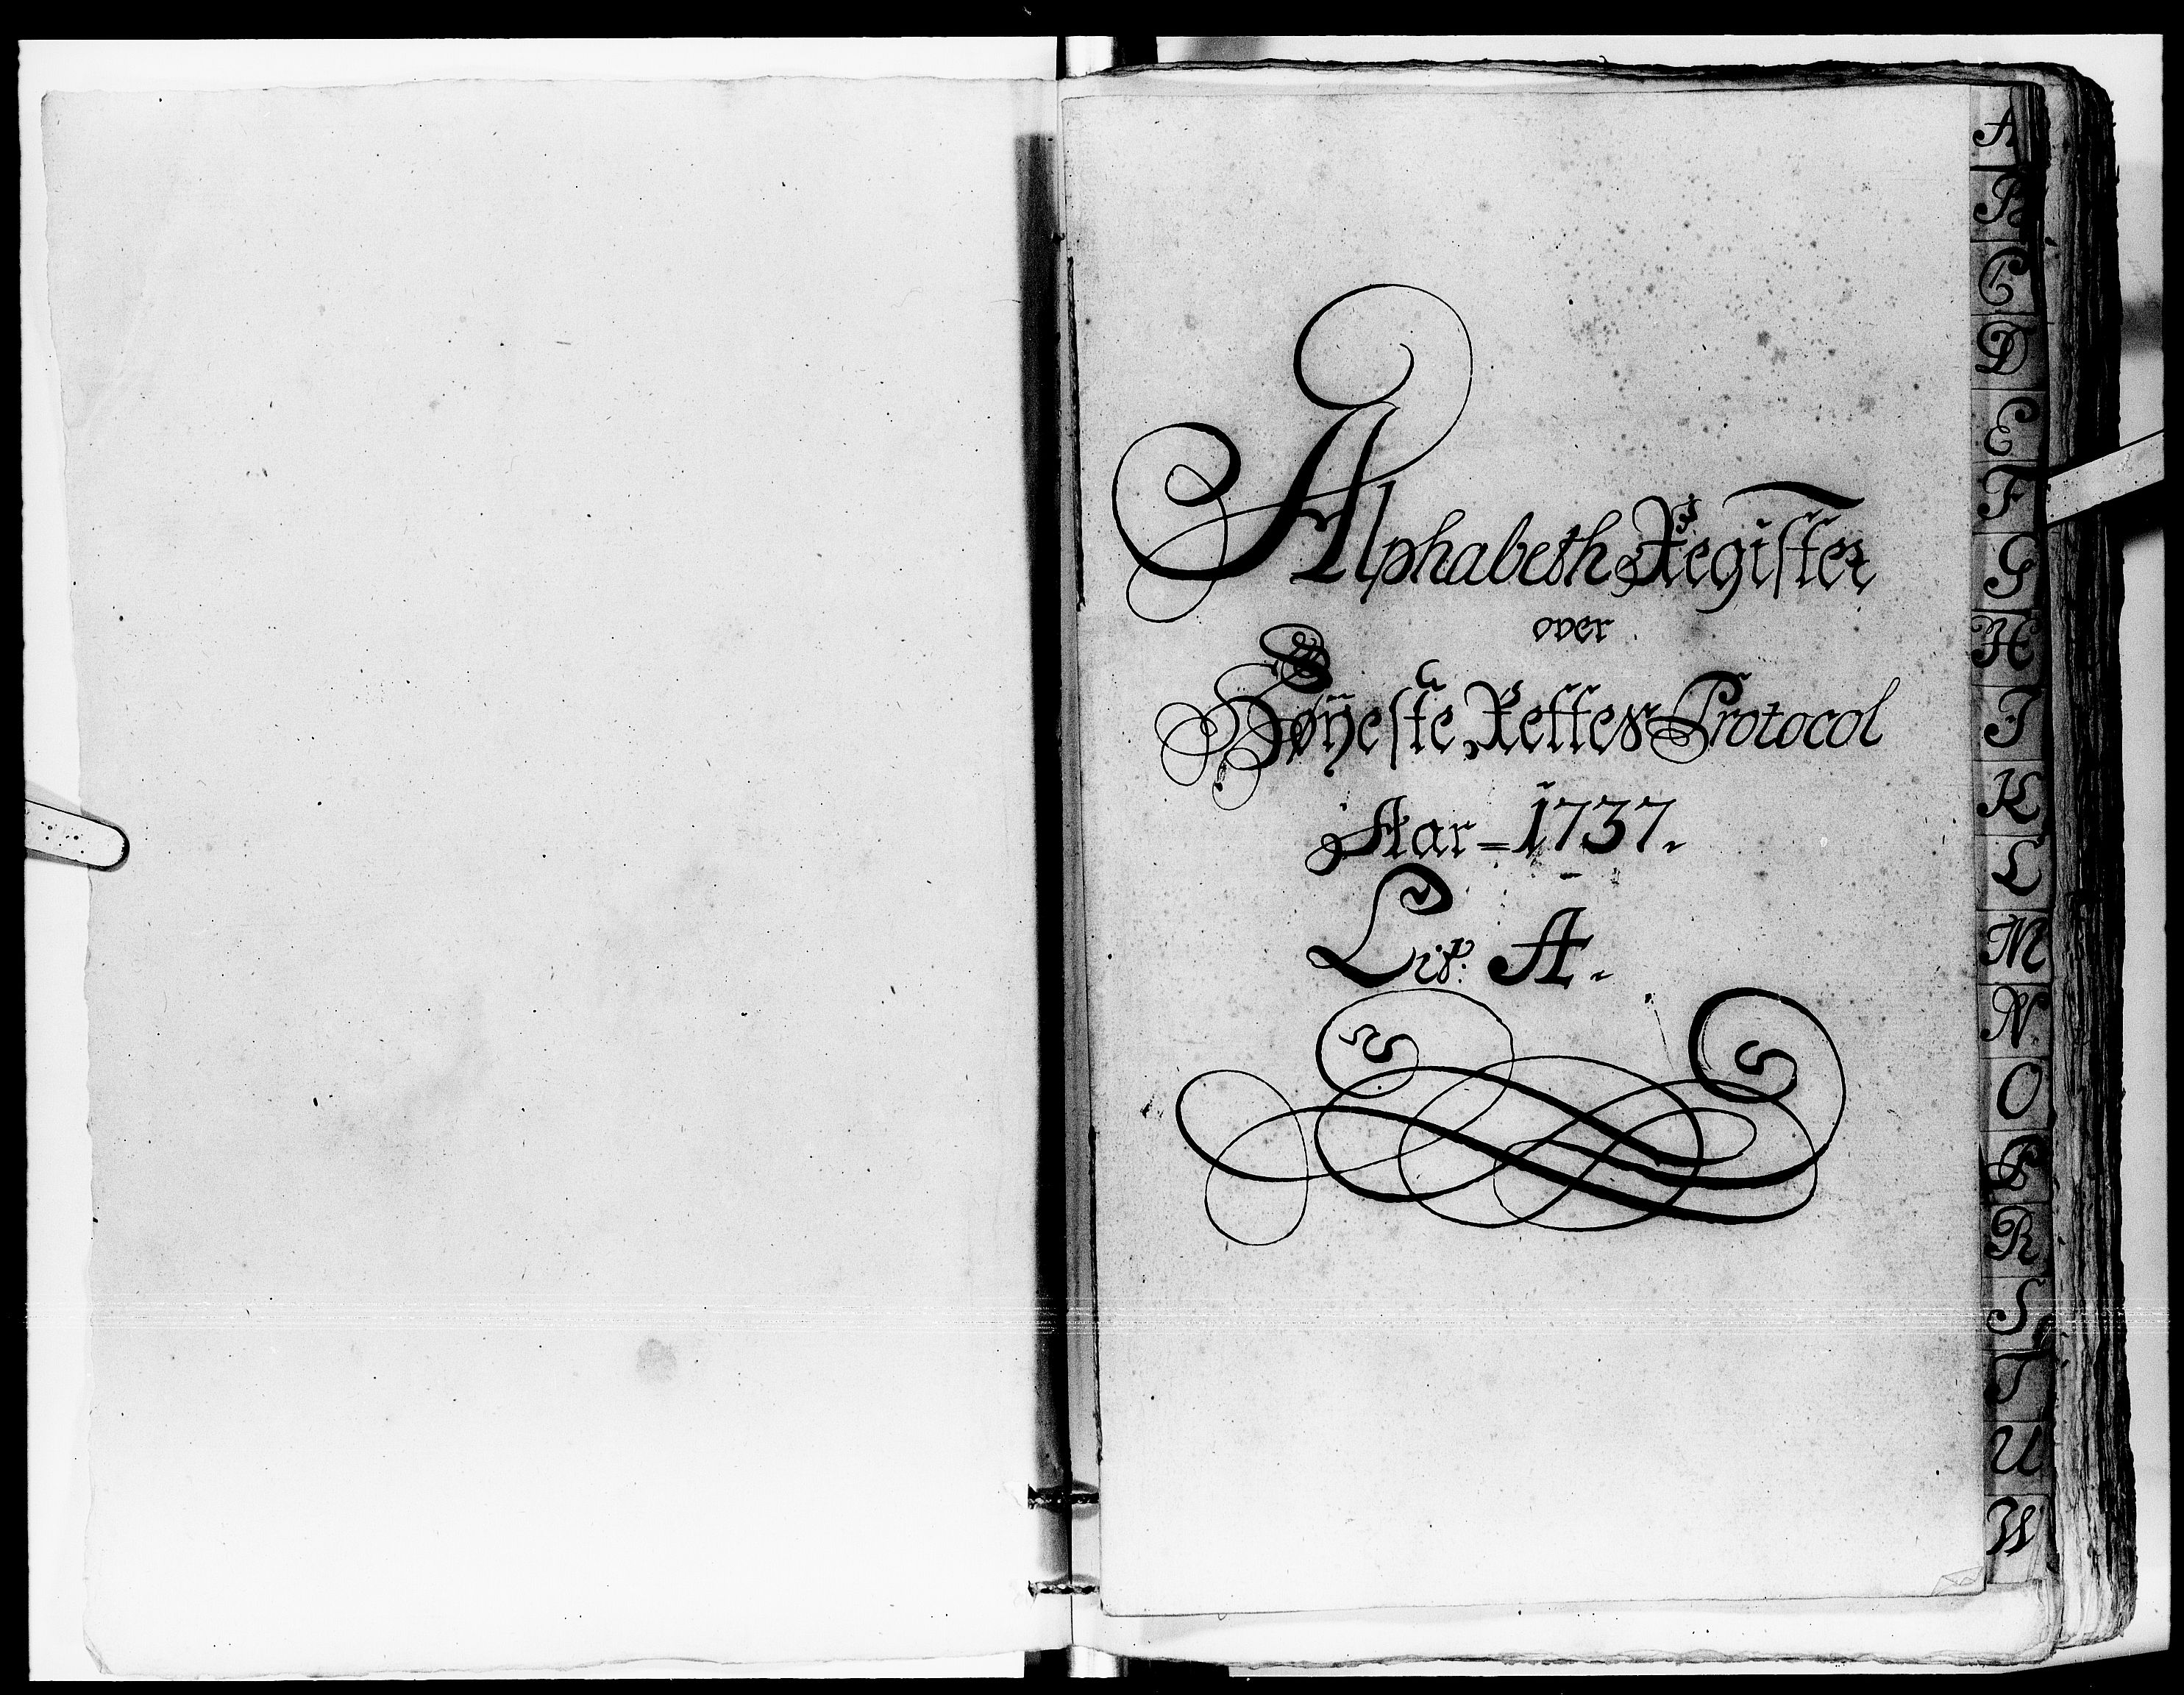 Alphabeth Register
over
Høÿeste Rettes Protocol
Aar = 1737.
Lit: A.
A
B
C
D
E
F
G
H
I
K
L
M
N.
O
P
R
S
T
U
W